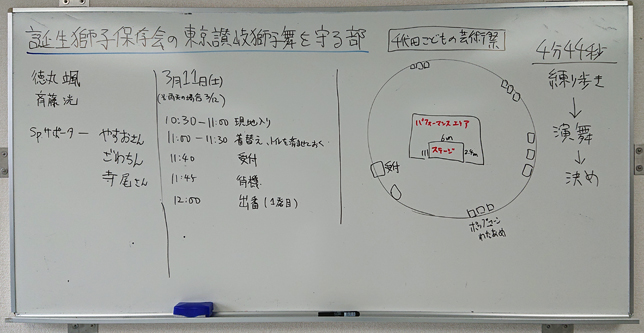 誕生獅子保存会の東京讃岐獅子舞を守る部
徳丸 颯
斉藤 洸
Spサポーター やすおさん
ごわちん
寺尾さん
3月11日(土)
10:30-11:00 現地入り
11:00-11:30 着替え、トイレを済ませておく
11:40 受付
11:45 待機
12:00 出番(1番目)
千代田こどもの芸術祭
パフォーマンスエリア
6m
ステージ
2.4m
受付
ポップコーン
わたあめ
4分44秒
練り歩き
↓
演舞
↓
決め